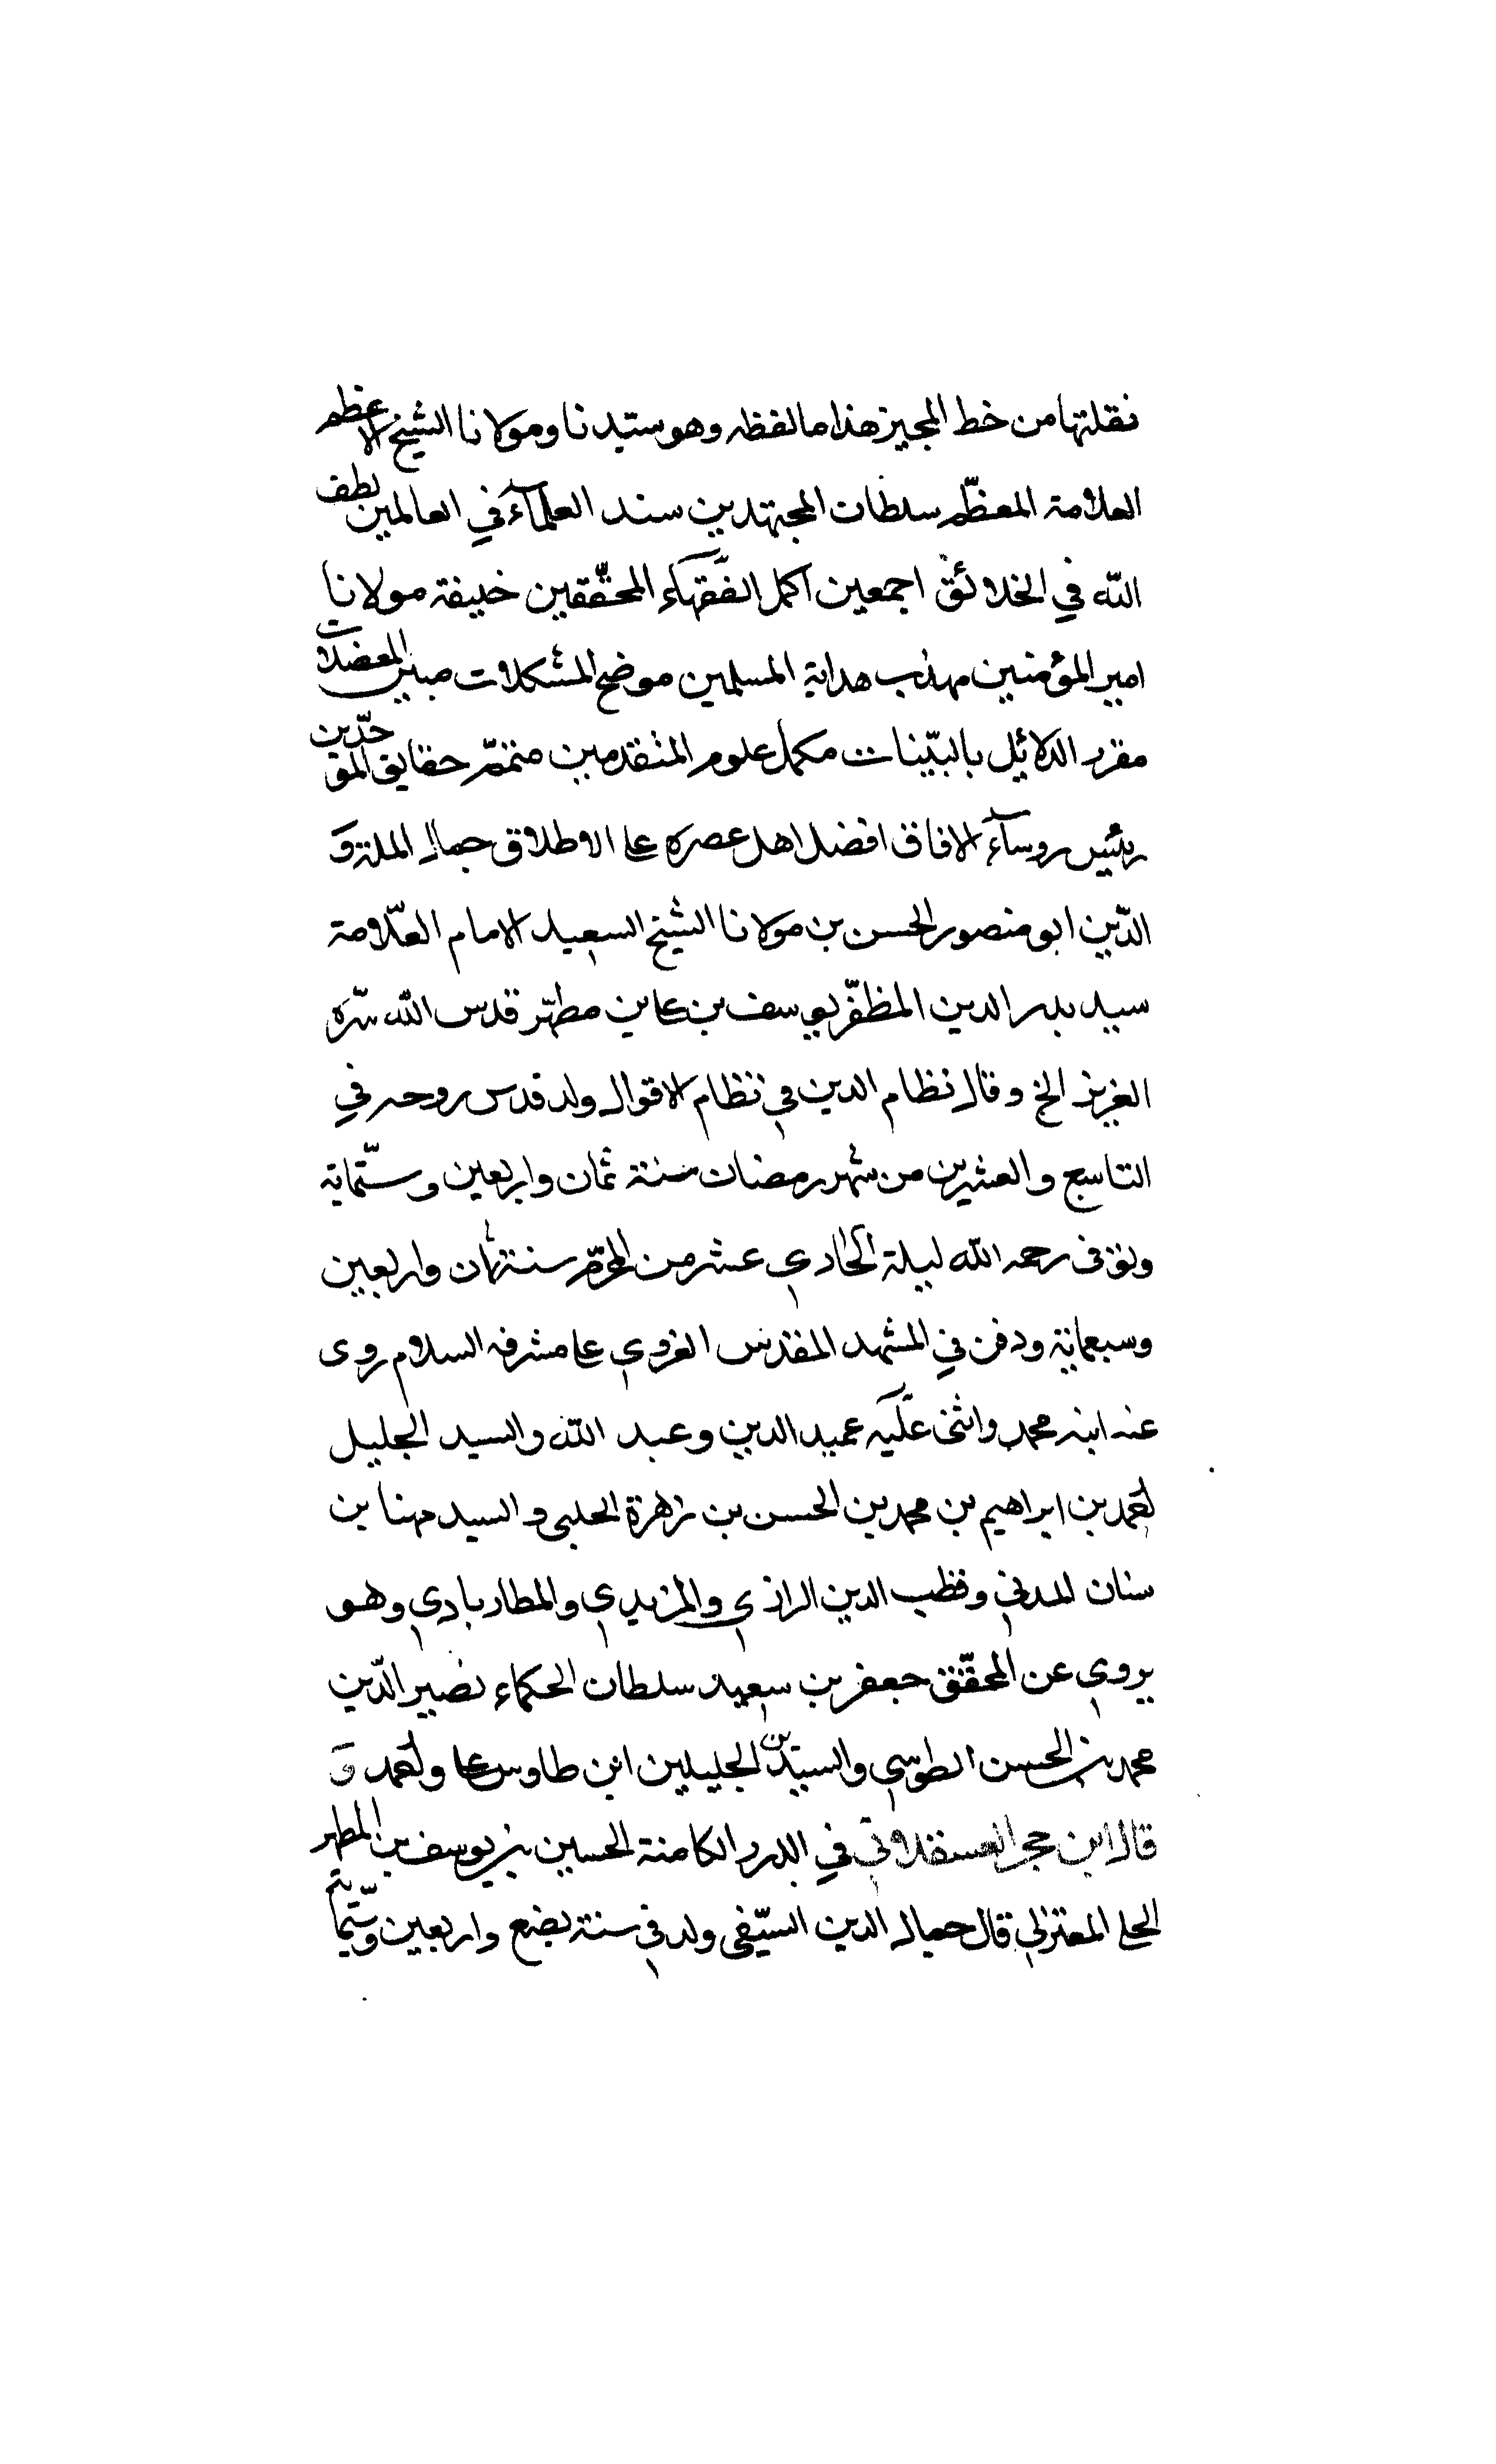 نقلتها من خط المجيز هذا ما لفظه وهو سيدنا ومولانا الشيخ الاعظم
العلامة المعظّم سلطان المجتهدين سند العلمآء في العالمين لطف
اللّه في الخلائق اجمعين اكمل الفقهآء المحقّقين خليفة مولانا
امير المؤمنين مهذب هداية المسلمين موضح المشكلات مبين المعضلات
مقرر الدلائل بالبيّنات مكمل علوم المتقدمين متمّم حقايق الموحّدين
رئيس روسآء الافاق افضل اهل عصره على الاطلاق جمال الملة وَ
الدّين ابو منصور الحسن بن مولانا الشيخ السعيد الامام العلّامة
سيد بدر الدين المظفّر يوسف بن علي بن مطهّر قدس اللّه سرّه
العزيز الخ وقال نظام الدين في نظام الاقوال ولد قدس روحه في
التاسع والعشرين من شهر رمضان سنة ثمان واربعين وستّماية
وتوفى رحمه اللّه ليلة الحادي عشر من المحرّم سنة ثمان واربعين
وسبعماية ودفن في المشهد المقدس الغروي على مشرفه السلام روى
عنه ابنه محمد واثنى عليه عميد الدين وعبد اللّه والسيد الجليل
احمد بن ابراهيم بن محمد بن الحسن بن زهرة الحلبي والسيد مهنا بن
سنان المدني وقطب الدين الرازي والمزيدي والمطاربادي وهو
يروي عن المحقّق جعفر بن سعيد سلطان الحكماء نصير الدّين
محمد بن الحسن الطوسي والسيّدين الجليلين ابن طاوس علي واحمد وَ
قال ابن حجر العسقلاني في الدرر الكامنة الحسين بن يوسف بن المطهر
الحلي المعتزلي قال جمال الدين السيّفى ولد في سنة بضع واربعين وستّماية